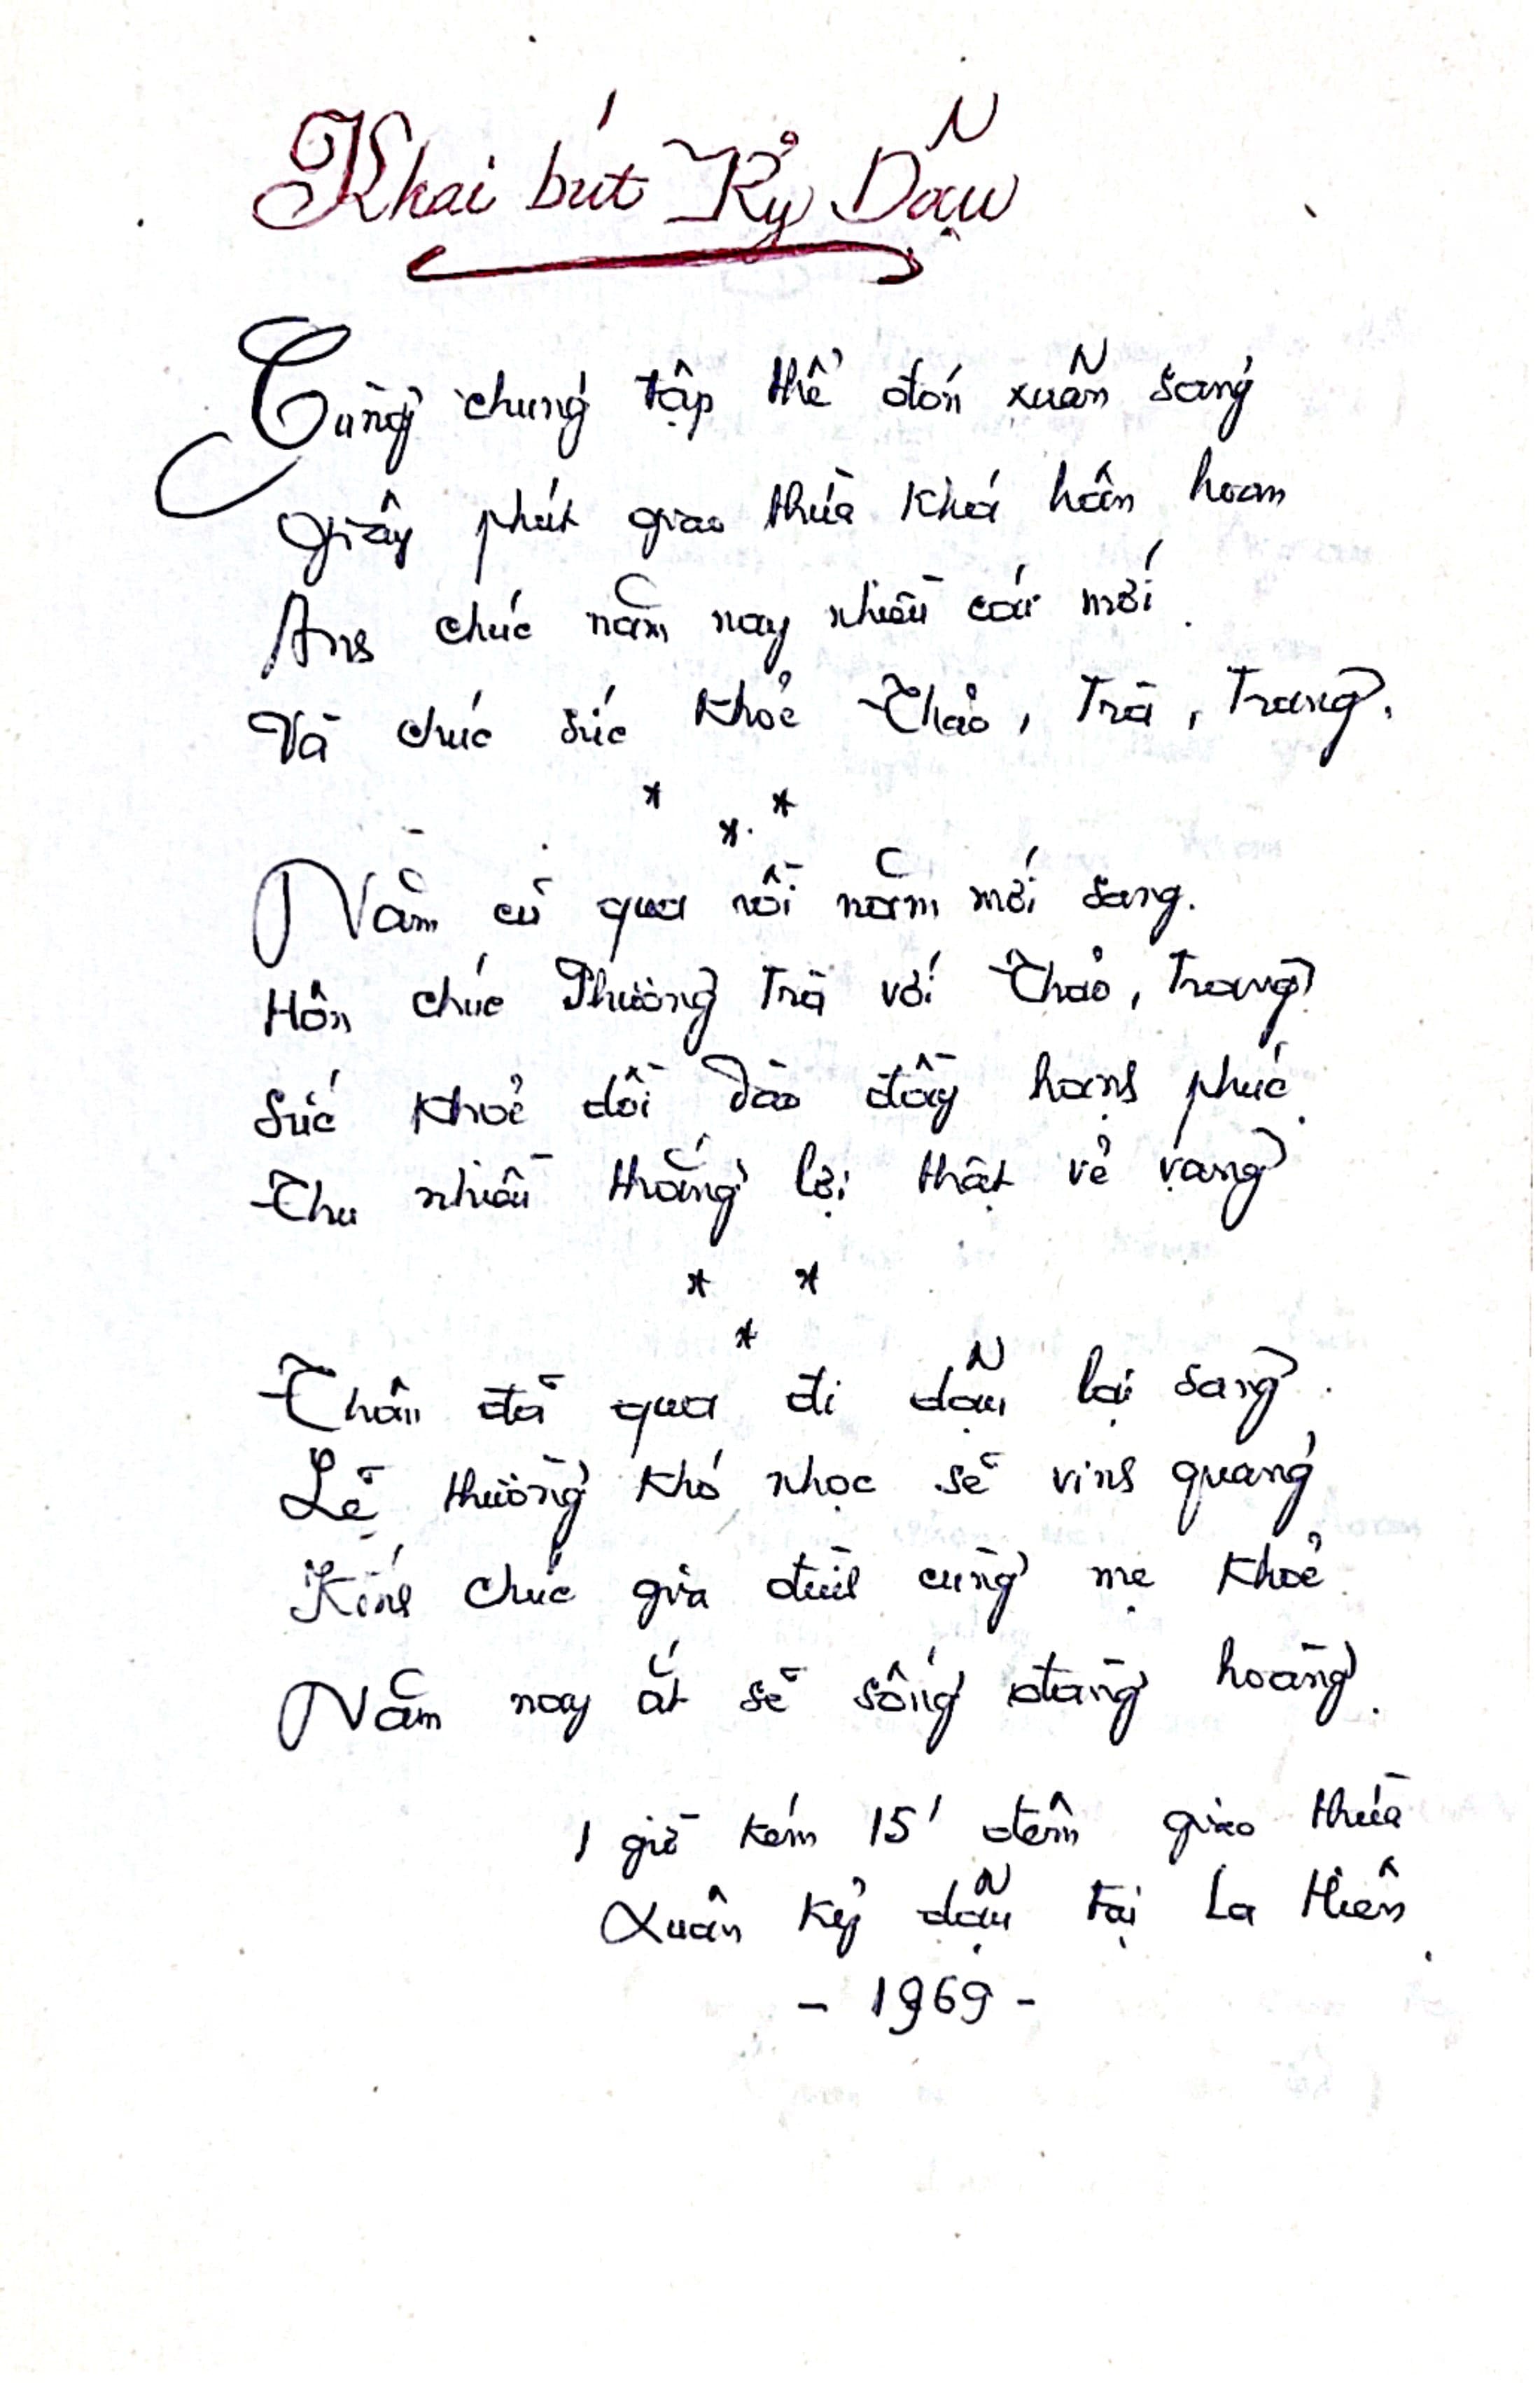 Khai bút Kỷ Dậu
Cùng chung tập thể đón xuân sang
Giây phút giao thừa khá hân hoan
Anh chúc năm nay nhiều cái mới.
Và chúc sức khoẻ Thảo, Trà, Trang.
* * *
Năm cũ qua rồi năm mới sang.
Hôn chúc Phường Trà với Thảo, Trang
Sức khoẻ dồi dào đầy hạnh phúc.
Thu nhiều thắng lợi thật vẻ vang
* * *
Thân đã qua đi dậu lại sang.
Lẽ thường khó nhọc sẽ vinh quang
Kính chúc gia đình cùng mẹ khoẻ.
Năm nay ắt sẽ sống đàng hoàng.
1 giờ kém 15' đêm giao thừa
Xuân kỷ dậu tại La Hiên.
- 1969 -